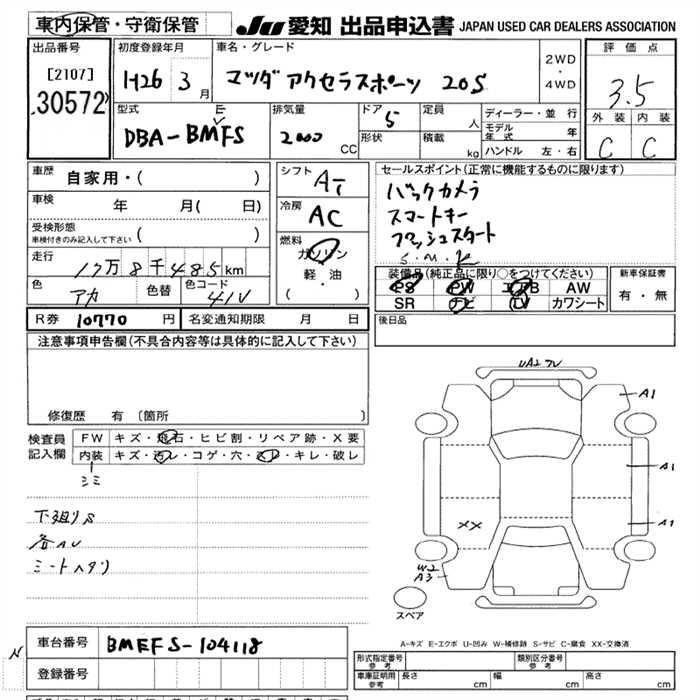 車内保管・守衛保管
JU 愛知 出品申込書 JAPAN USED CAR DEALERS ASSOCIATION
出品番号
[2107]
30572
初度登録年月
H26 3月
車名・グレード
マツダ アクセラスポーツ 20S
2WD
・
4WD
評価点
3.5
外装 内装
C C
型式
E
DBA-BMFS
排気量
2000
CC
ドア 5
形状
定員
人
積載
kg
ディーラー・並行
モデル年式 年
ハンドル 左・右
車歴
自家用・( )
車検
年 月( 日)
受検形態
車検付きのみ記入して下さい ( )
走行
17万8千485km
色
アカ
色替
色コード
41V
シフト
AT
冷房
AC
燃料
ガソリン
軽・油
( )
セールスポイント(正常に機能するものに限ります)
バックカメラ
スマートキー
プッシュスタート
装備品(純正品に限り○をつけてください)
PS PW エアB AW
SR ナビ TV カワシート
新車保証書
有・無
R券 10770 円
名変通知期限 月 日
後日品
注意事項申告欄(不具合内容等は具体的に記入して下さい)
修復歴 有 [箇所
検査員
記入欄
FW キズ・飛石・ヒビ割・リペア跡・X要
内装 キズ・汚レ・コゲ・穴・スレ・キレ・破レ
シミ
下廻りS
各AU
シートヘタリ
A1
A1
A1
XX
W2
A3
スペア
A-キズ E-エクボ U-凹み W-補修跡 S-サビ C-腐食 XX-交換済
N
車台番号
BMEFS-104118
登録番号
形式指定番号
参考
類別区分番号
参考
車庫証明用
参考
長さ cm
幅 cm
高さ cm